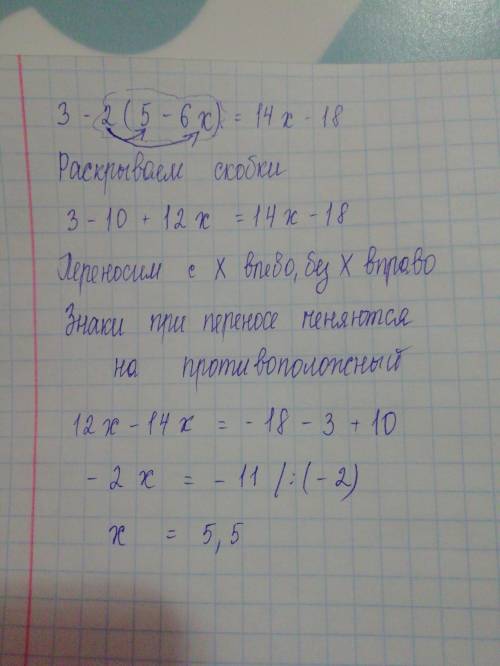 3 - 2(5 - 6x) = 14x - 18
Раскрываем скобки
3 - 10 + 12x = 14x - 18
Переносим с X влево, без X вправо
Знаки при переносе меняются
на противоположный
12x - 14x = - 18 - 3 + 10
- 2x = - 11 /:(- 2)
x = 5,5